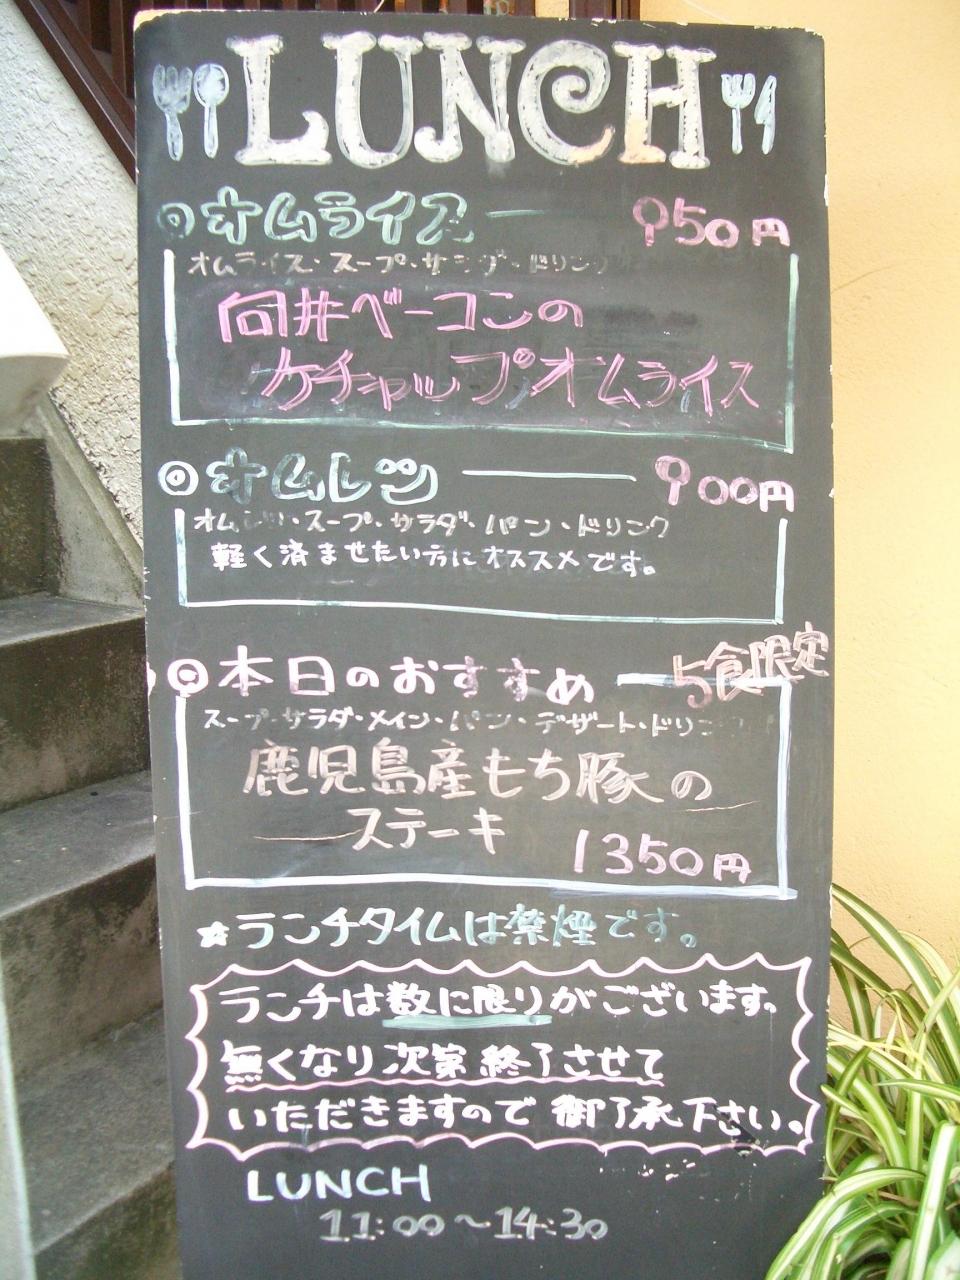 LUNCH
◎オムライス — 950円
オムライス・スープ・サラダ・ドリンク
向井ベーコンの
ケチャップオムライス
◎オムレツ — 900円
オムレツ・スープ・サラダ・パン・ドリンク
軽く済ませたい方にオススメです。
◎本日のおすすめ — 5食限定
スープ・サラダ・メイン・パン・デザート・ドリンク
鹿児島産もち豚の
ステーキ
1350円
☆ランチタイムは禁煙です。
ランチは数に限りがございます。
無くなり次第終了させて
いただきますので御了承下さい。
LUNCH
11:00～14:30